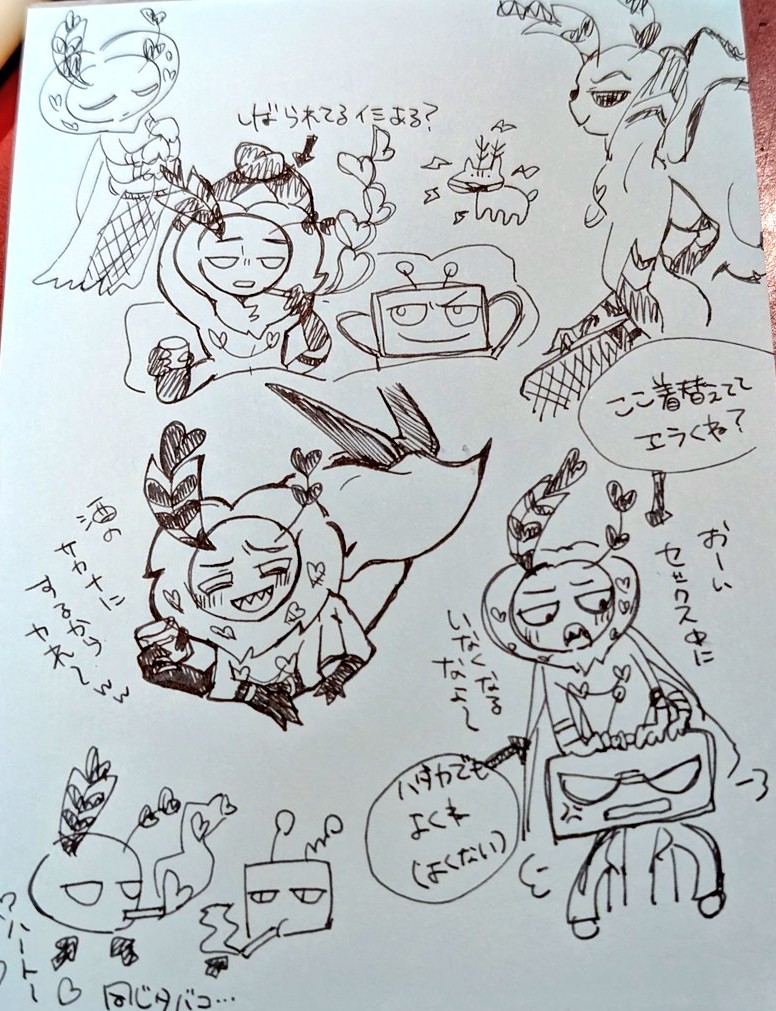 しばられてるイミある?
ここ着替えてて
エラくね?
おーい
セックス中に
いなくなる
なよ〜
酒の
サカナに
するから
ヤれ〜ww
ハダカでも
よくね
(よくない)
ハートー
同じタバコ…